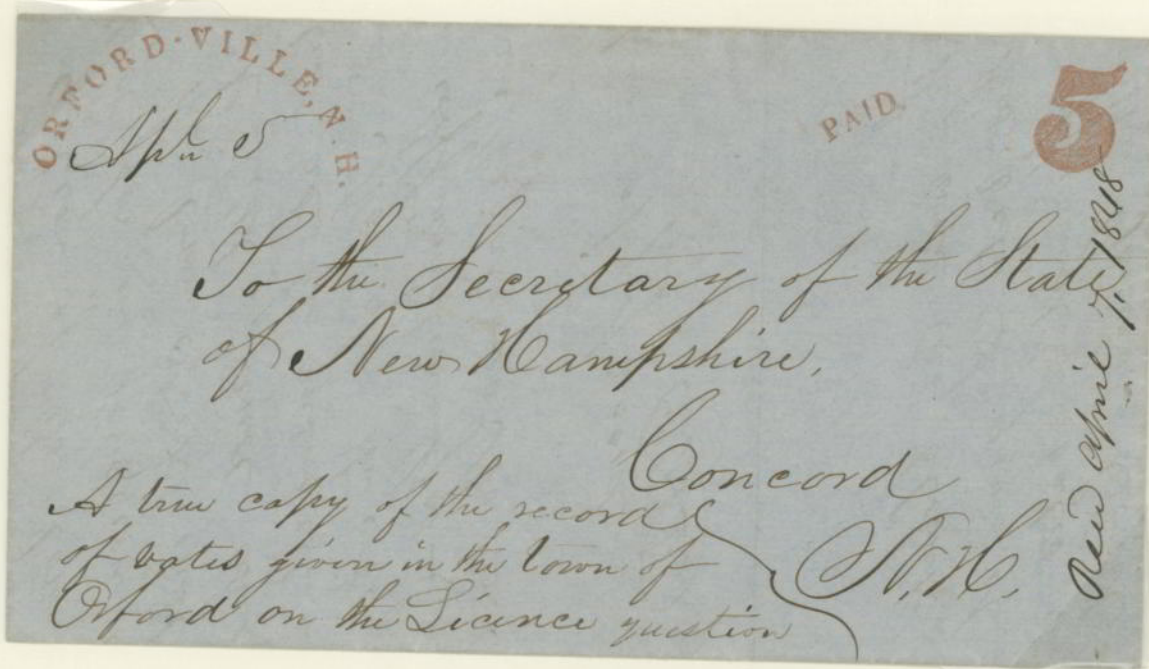 ORFORD-VILLE, N.H.
Apl 5
PAID
5
To the Secretary of the State
of New Hampshire,
Concord
N.H.
A true copy of the record
of votes given in the town of
Orford on the Licence question
Recd April 7. 1848